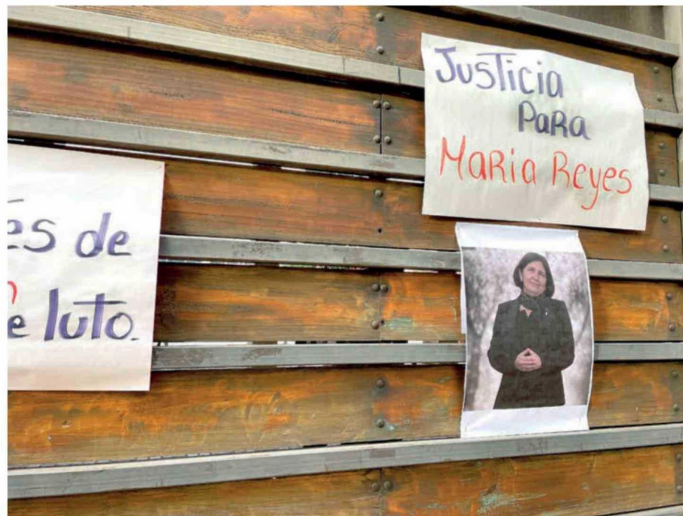 Justicia
Para
Maria Reyes
es de
e luto.